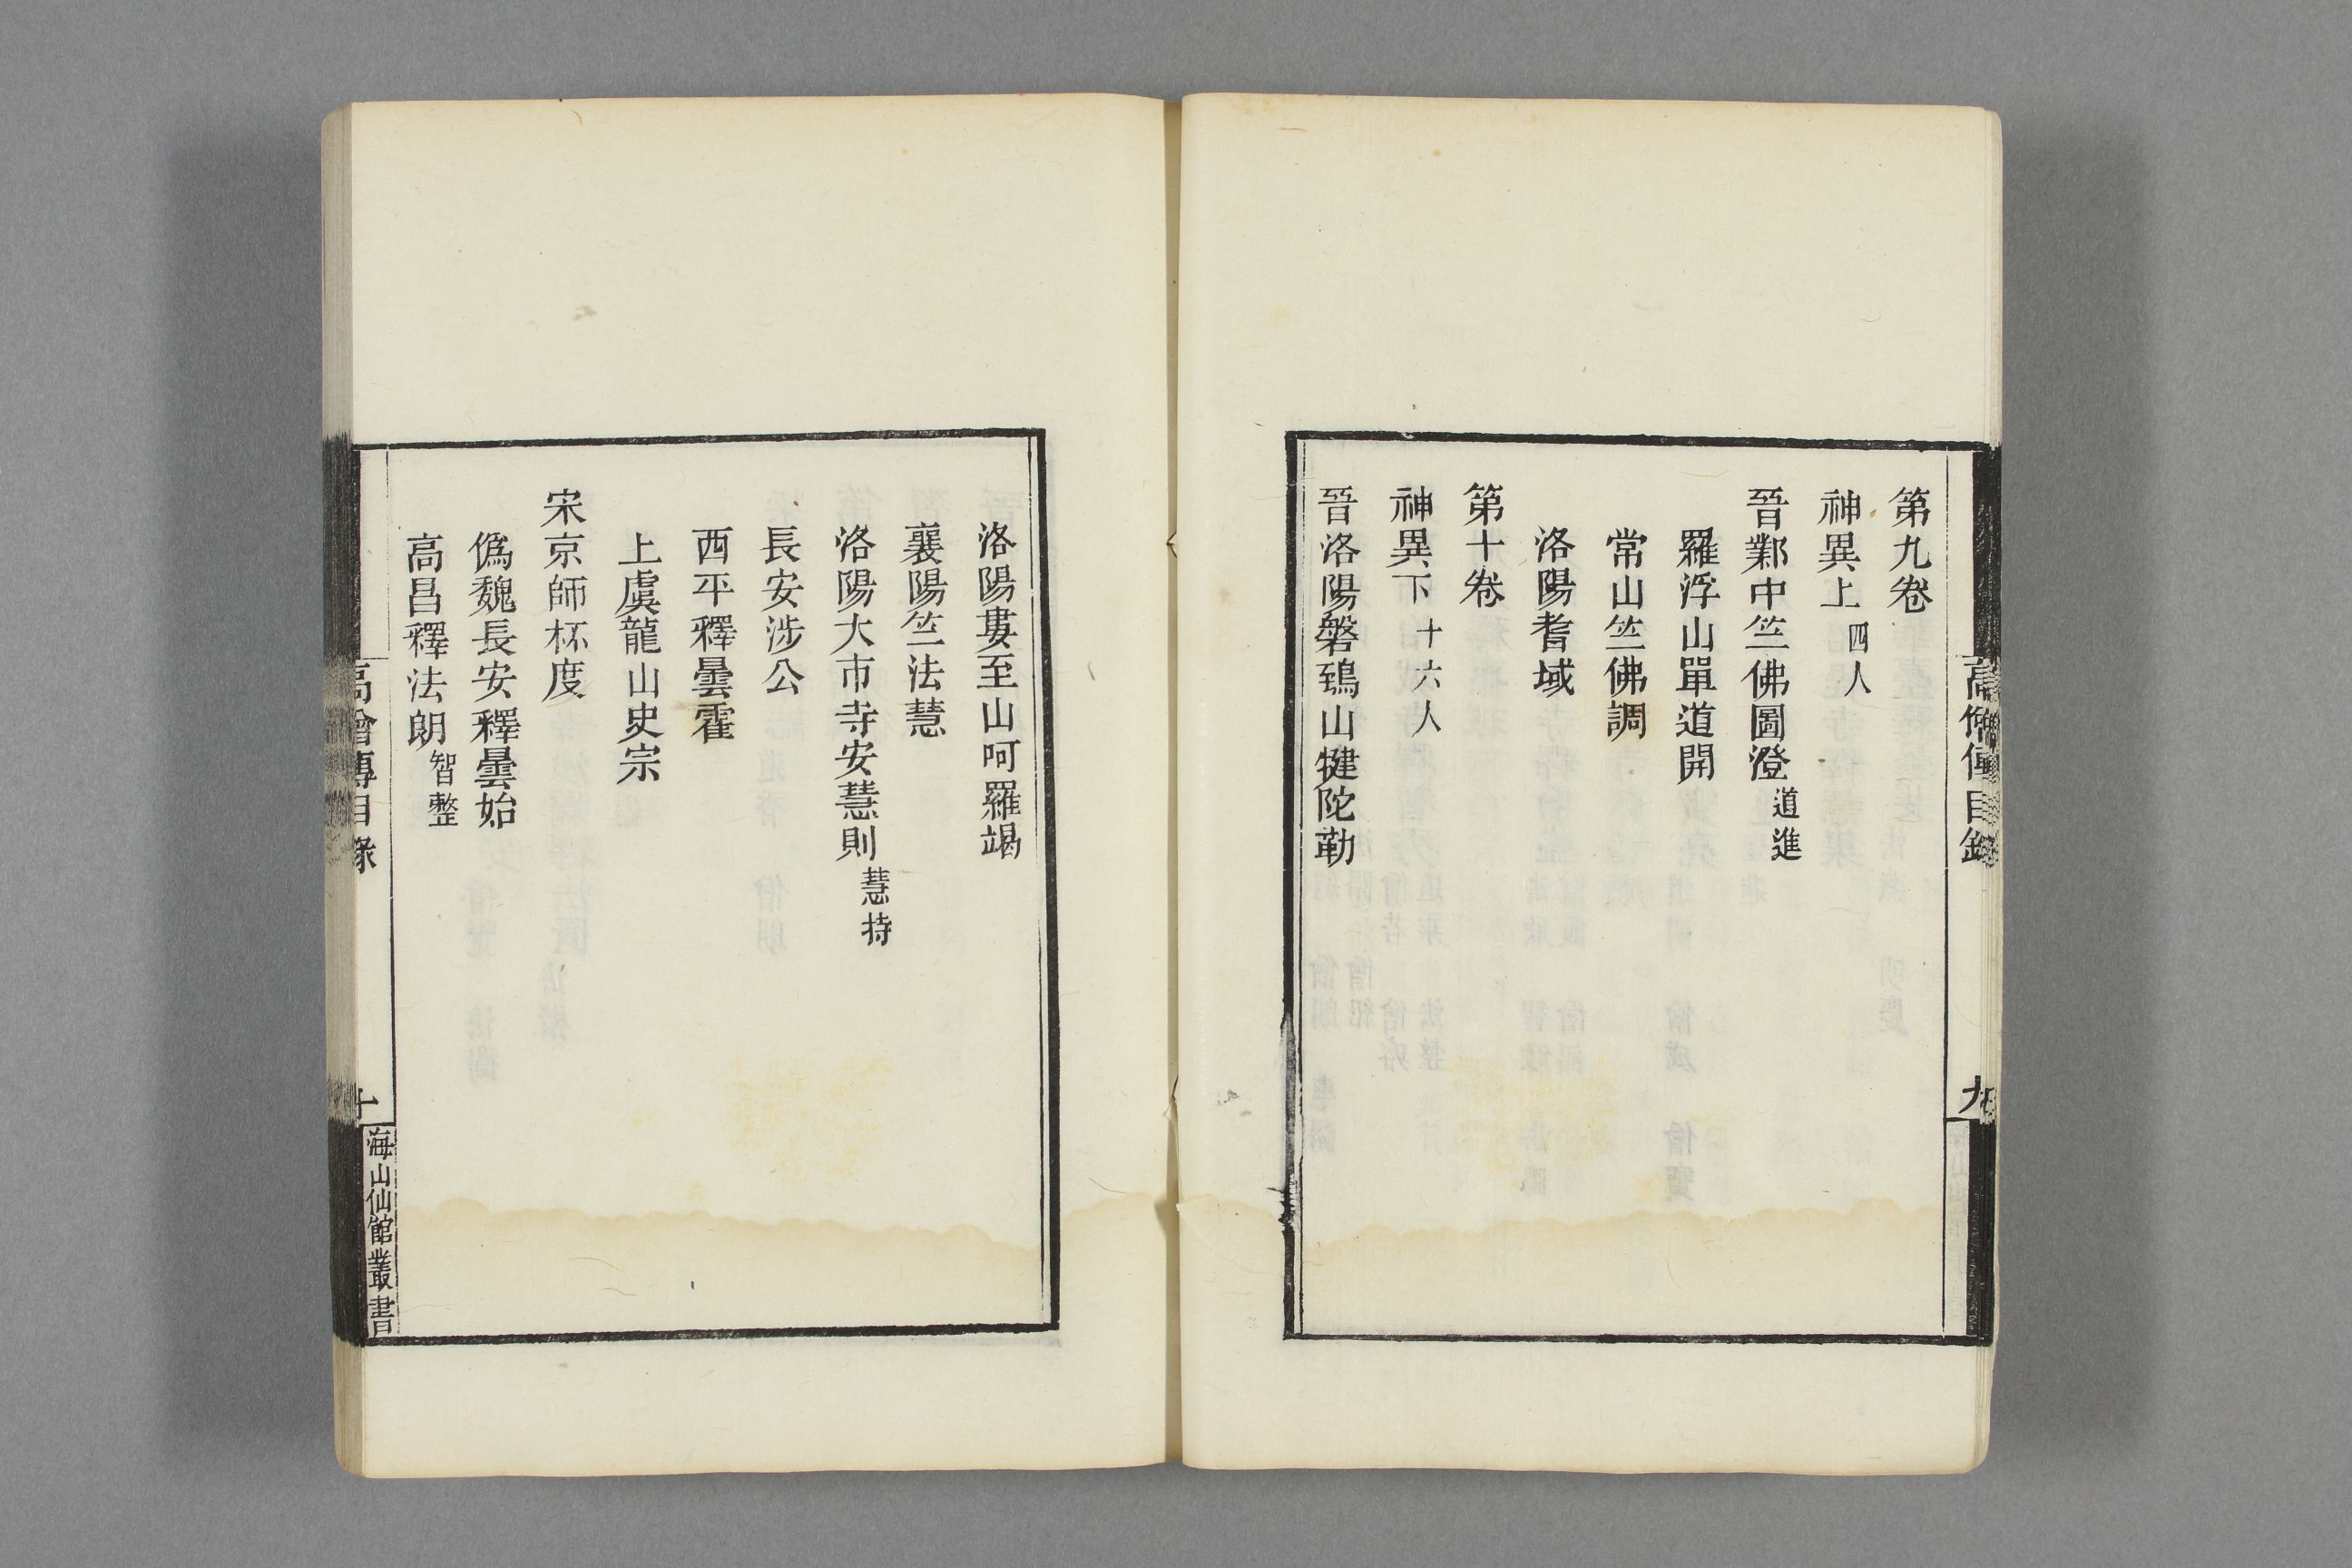 第九卷
神異上 四人
晉鄴中竺佛圖澄 道進
羅浮山單道開
常山竺佛調
洛陽耆域
第十卷
神異下 十六人
晉洛陽磐鵄山犍陀勒
洛陽婁至山呵羅竭
襄陽竺法慧
洛陽大市寺安慧則 慧持
長安涉公
西平釋曇霍
上虞龍山史宗
宋京師杯度
偽魏長安釋曇始
高昌釋法朗 智整
高僧傳目錄
十
海山仙館叢書